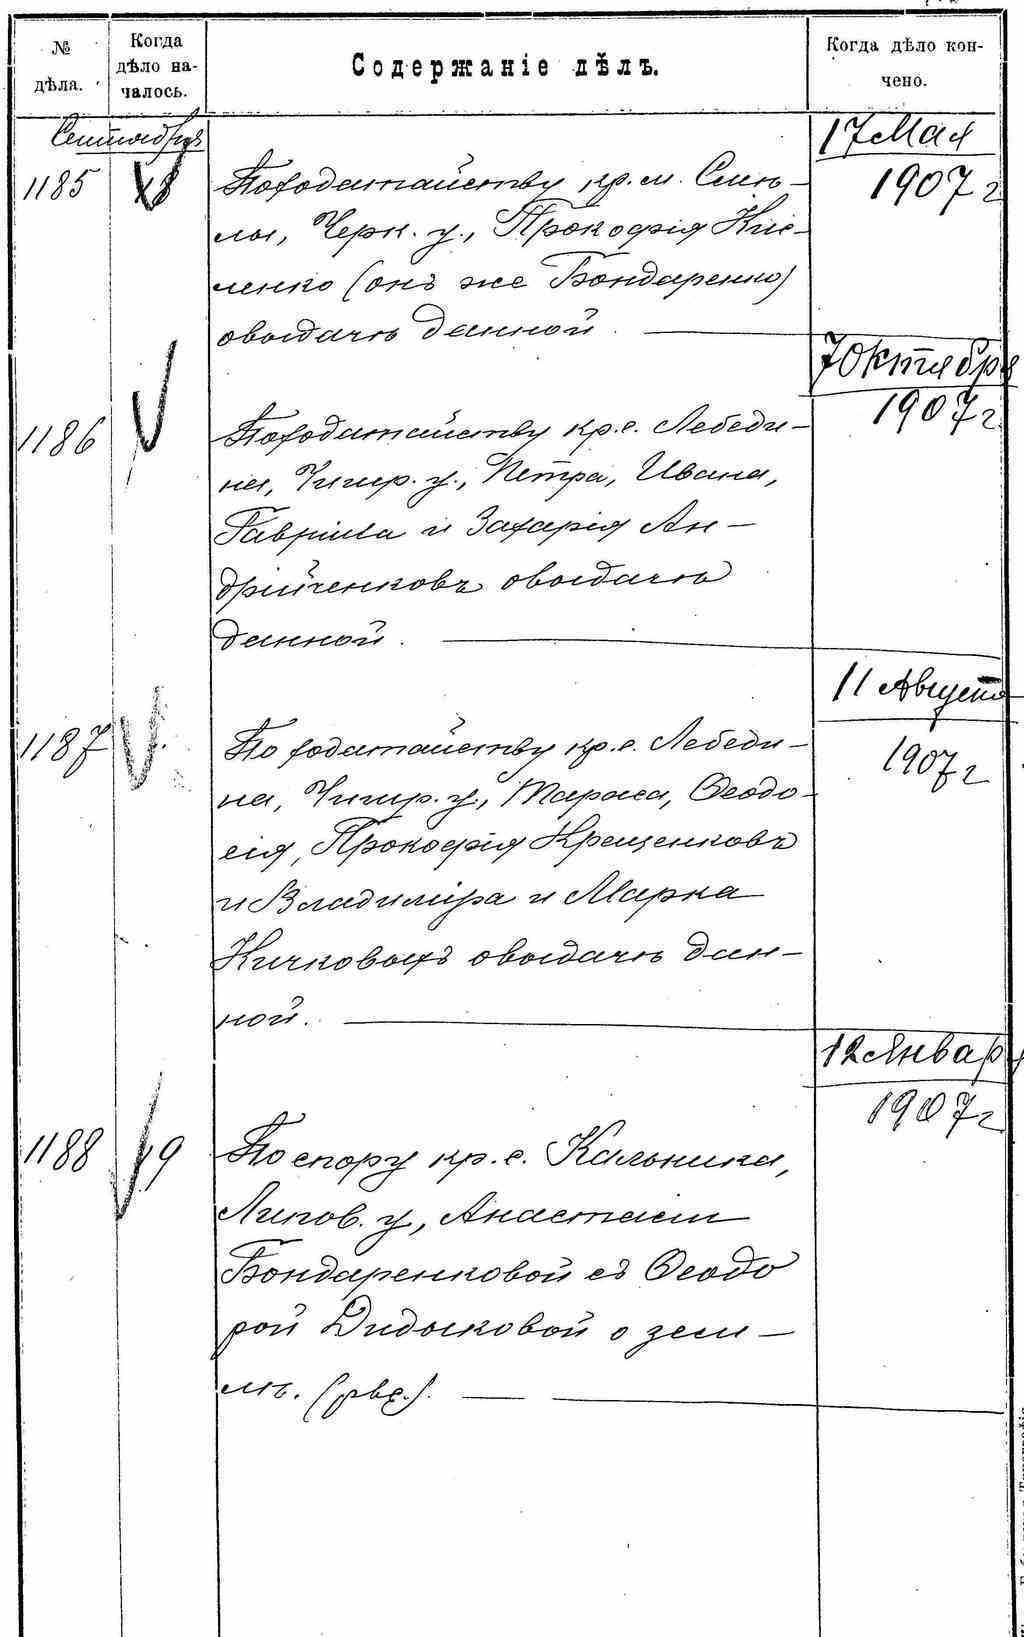 № дѣла.
Когда дѣло на-
чалось.
Содержаніе дѣлъ.
Когда дѣло кон-
чено.
Сентябрь
1185
18
По ходатайству кр. м. Смѣ-
лы, Черк. у., Прокофія Кис-
ленко (онъ же Бондаренко)
о выдачѣ данной.
17 Мая
1907 г
1186
По ходатайству кр. с. Лебеди-
на, Чигир. у., Петра, Ивана,
Гавріила и Захарія Ан-
дрійченковъ о выдачѣ
данной.
7 Октября
1907 г.
1187
По ходатайству кр. с. Лебеди-
на, Чигир. у., Тараса, Ѳеодо-
сія, Прокофія Крещенковъ
и Владиміра и Марка
Кичковыхъ о выдачѣ дан-
ной.
11 Августа
1907 г
1188
19
По спору кр. с. Кальника,
Липов. у, Анастасіи
Бондаренковой съ Ѳеодо
рой Дидыковой о зем-
лѣ.
12 Января
1907 г